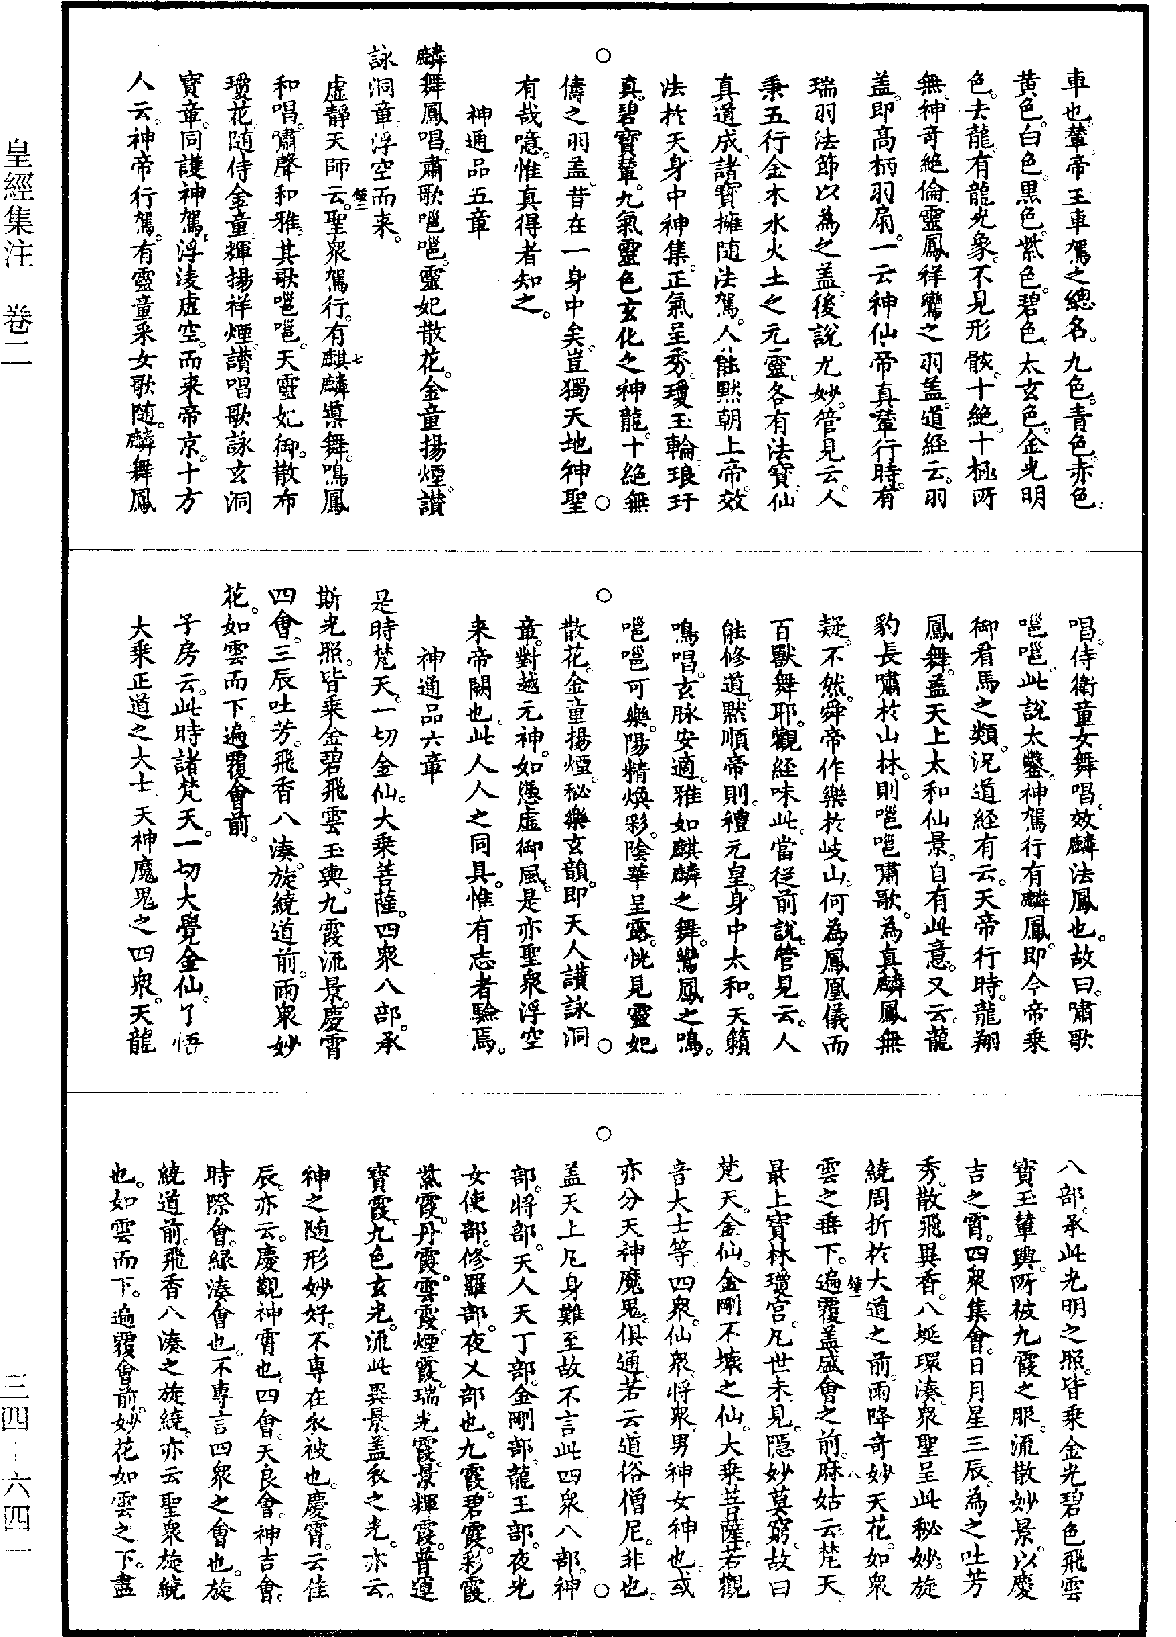 皇經集注　卷二
三四—六四一
車也。輦帝王車駕之總名。九色。青色。赤色
黃色。白色。黑色。紫色。碧色。太玄色。金光明
色。去龍。有龍光象。不見形骸。十絶。十極所
無。神奇絶倫。靈鳳祥鸞之羽盖。道經云。羽
盖。即高柄羽扇。一云神仙帝真輦行時。有
瑞羽法節以為之盖。後說尤妙。管見云。人
秉五行金木水火土之元靈。各有法寶。仙
真道成。諸寶擁随法駕。人能默朝上帝。效
法於天。身中神集。正氣呈秀。瓊玉輪琅玕
真。碧寶輦。九氣靈色玄化之神龍。十絶無
儔之羽盖。昔在一身中矣。豈獨天地神聖
有哉。噫。惟真得者知之。
神通品五章
麟舞鳳唱。肅歌嗈嗈。靈妃散花。金童揚煙。讃
詠洞章。浮空而来。
虛靜天師云。聖衆駕行。有麒麟㒹舞。鳴鳳
和唱。嘯聲和雅。其歌嗈嗈。天靈妃御。散布
瓊花。随侍金童。輝揚祥煙。讃唱歌詠玄洞
寳章。同護神駕。浮淩虛空。而来帝京。十方
人云。神帝行駕。有靈童采女歌随。麟舞鳳
唱。侍衛童女舞唱。效麟法鳳也。故曰嘯歌
嗈嗈。此說太鑿。神駕行有麟鳳。即今帝乘
御君馬之類。况道經有云。天帝行時。龍翔
鳳舞。盖天上太和仙景。自有此意。又云。龍
豹長嘯於山林。則嗈嗈肅歌。為真麟鳳無
疑。不然。舜帝作樂於岐山。何為鳳凰儀而
百獸舞耶。觀經味此。當從前說。管見云。人
能修道。默順帝則。禮元皇。身中太和。天籟
鳴唱。玄脉安適。雅如麒麟之舞。鸞鳳之鳴。
嗈嗈可樂。陽精煥彩。陰華呈露。恍見靈妃
散花。金童揚煙。秘樂玄韻。即天人讃詠洞
章。對越元神。如憑虛御風。是亦聖衆浮空
来帝闕也。此人人之同具。惟有志者驗焉。
神通品六章
是時梵天。一切金仙。大乘菩薩。四衆八部。承
斯光照。皆乘金碧飛雲玉輿。九霞流景。慶霄
四會。三辰吐芳。飛香八湊。旋繞道前。雨衆妙
花。如雲而下。遍覆會前。
子房云。此時諸梵天。一切大覺金仙。了悟
大乘正道之大士。天神魔鬼之四衆。天龍
八部。承此光明之照。皆乘金光碧色飛雲
寳玉輦輿。所被九霞之服。流散妙景。以慶
吉之霄。四衆集會。日月星三辰。為之吐芳
秀。散飛異香。八埏環湊。衆聖呈此秘妙。旋
繞周折於大道之前。雨降奇妙天花。如衆
雲之垂下。遍覆盖盛會之前。麻姑云。梵天
最上寳林瓊宫。凡世未見。隱妙莫窮。故曰
梵天。金仙。金剛不壊之仙。大乘菩薩。若觀
音大士等。四衆。仙衆。將衆。男神女神也。或
亦分天神魔鬼。俱通。若云道俗僧尼。非也。
盖天上凡身難至。故不言此。四衆八部。神
部。將部。天人天丁部。金剛部。龍王部。夜光
女使部。修羅部。夜义部也。九霞。碧霞。彩霞。
紫霞。丹霞。雲霞。煙霞。瑞光霞。景輝霞。普運
寳霞。九色玄光。流此異景。盖衣之光。亦云。
神之随形妙好。不專在衣被也。慶霄。云佳
辰。亦云。慶觀神霄也。四會。天良會。神吉會。
時際會。緑湊會也。不專言四衆之會也。旋
繞道前。飛香八湊之旋繞。亦云聖衆旋繞
也。如雲而下。遍覆會前。妙花如雲之下。盡